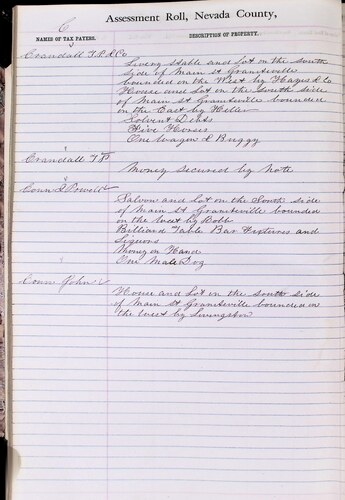 C
Assessment Roll, Nevada County,
NAMES OF TAX PAYERS.
DESCRIPTION OF PROPERTY.
Crandall T.P. & Co
Livery Stable and Lot on the South
side of Main St Graniteville
bounded on the West by & Co
House and Lot on the South side
of Main St Graniteville bounded
on the East by
Solvent Debts
Five Horses
One Wagon & Buggy
Crandall T P
Money secured by note
Conn &
Saloon and Lot on the South side
of Main St Graniteville bounded
on the West by
Billiard Table Bar Fixtures and
Liquors
Money on Hand
One Male Dog
Conn John
House and Lot on the South side
of Main St Graniteville bounded on
the West by Livingston